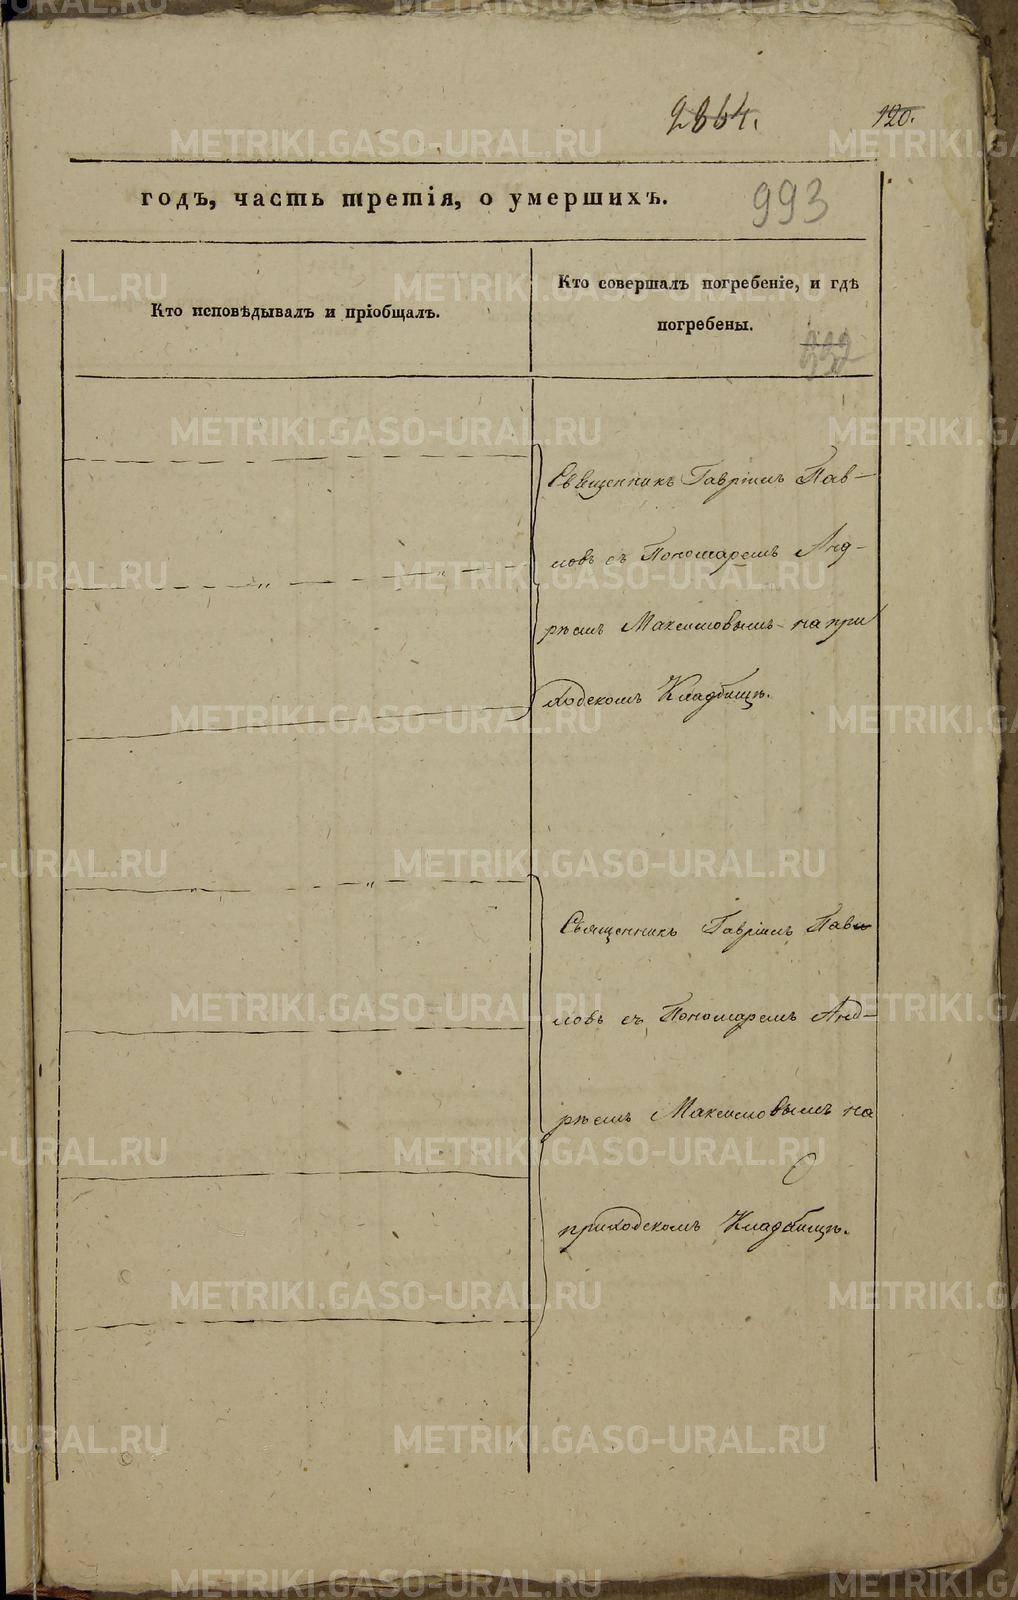 120.
годъ, часть третія, о умершихъ.
993
Кто исповѣдывалъ и пріобщалъ.
Кто совершалъ погребеніе, и гдѣ
погребены.
Священникъ Гавріилъ Пав-
ловъ съ Пономаремъ Анд-
рѣемъ Максимовымъ на при
ходскомъ Кладбищѣ.
Священникъ Гавріилъ Пав
ловъ съ Пономаремъ Анд-
рѣемъ Максимовымъ на
приходскомъ Кладбищѣ.
METRIKI.GASO-URAL.RU